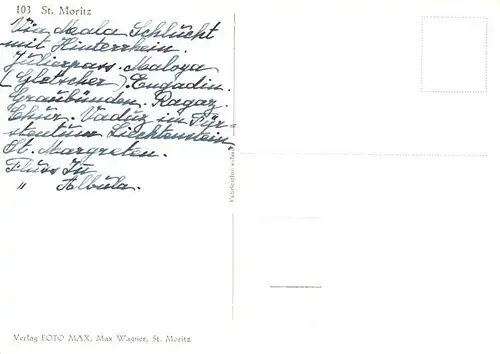 103 St. Moritz
Via Meala Schlucht
mit Hinterrhein.
Jülierpass. Maloya
(Gletscher). Engadin.
Graubünden. Ragaz.
Chur. Vaduz in Für-
stentum Liechtenstein
St. Margreten.
Fluss In
" Albula.
Verlag FOTO MAX, Max Wagner, St. Moritz